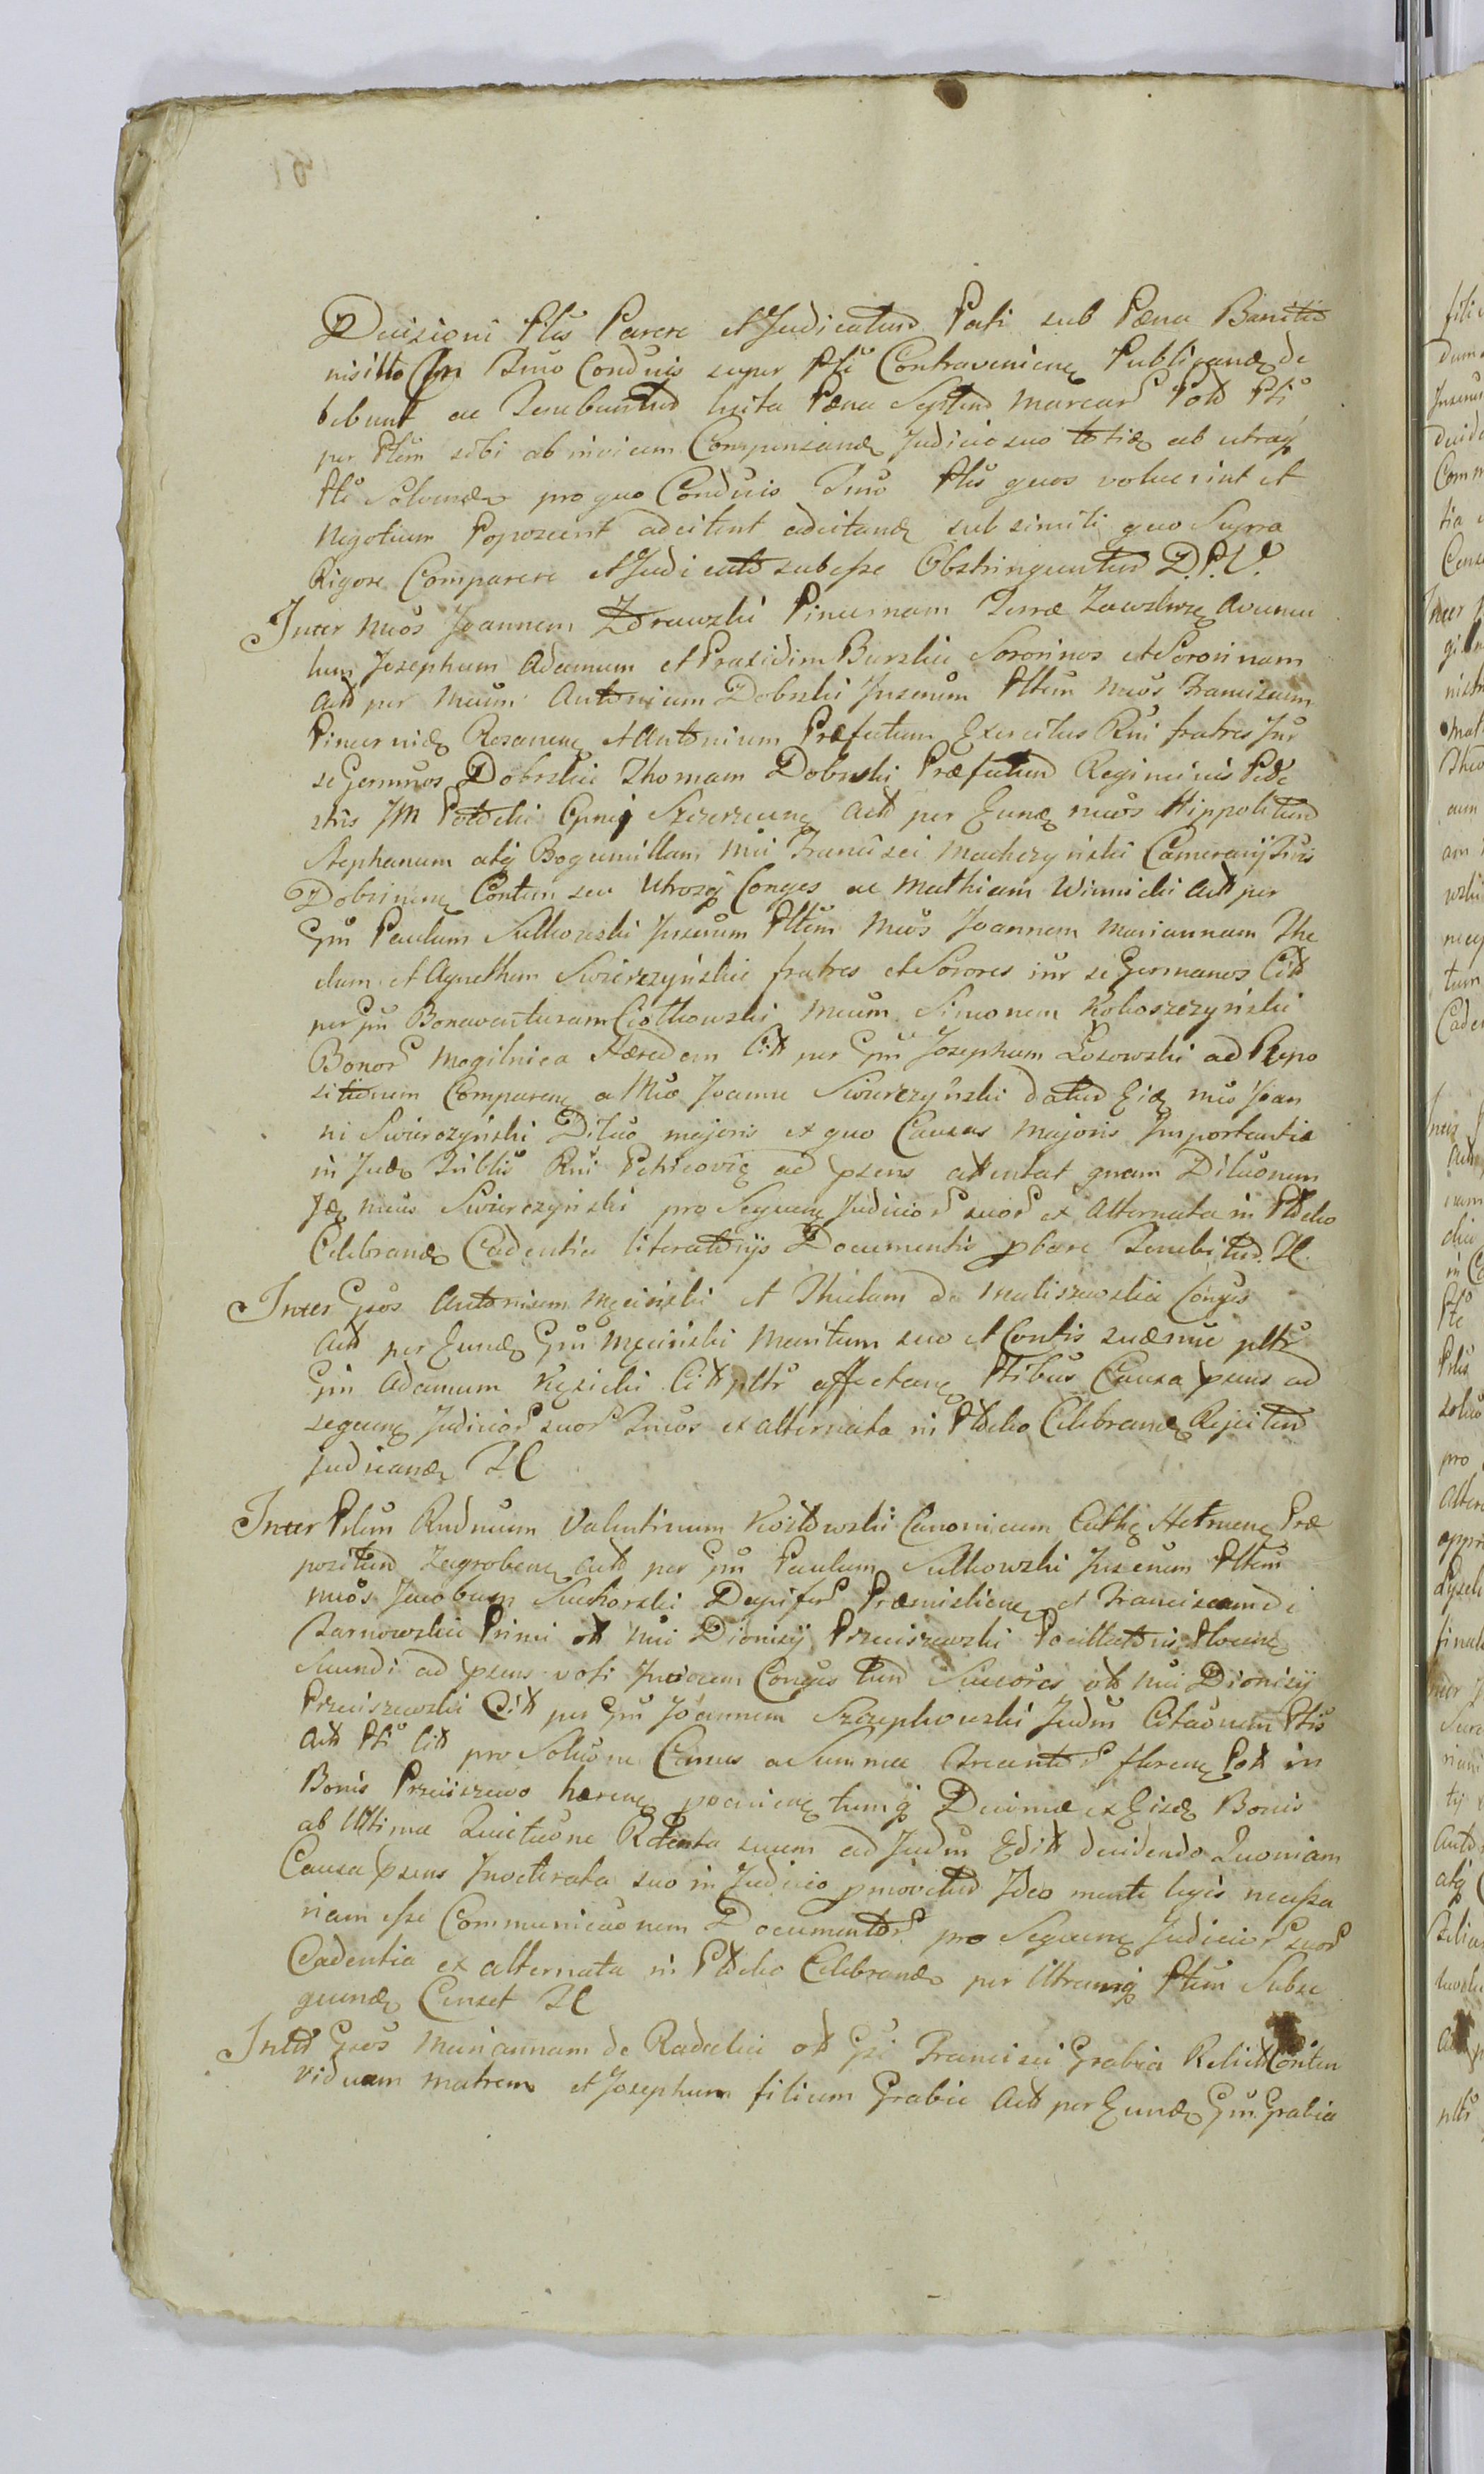 Decisioni Ptis Parere et Judicatum Pati sub Pæna Bannitis
nis illo Cis Tmo Condnis super Pti Contravenienę Publicanđ de
bebunt ac Tenebuntur luita Pæna Septem marcar Pold Pti
per Ptem sibi ab invicem Compensanđ Judicio suo totiđ ab utraq
Pte Solvenđ pro quo Condnis Tmo Ptes quos voluerint et
Negotium Poposcerit adcitent adcitanđ sub simili quo Supra
Rigore Comparere et Judicato subesse Obstringuntur D.P.V.
Inter Mcos Joannem Zdrewski Pincernam Terræ Zawskrzę Avuncu
lum Josephum Adamum et Praxidim Burskie Sororinos et Sororinam
Act per Mcum Antonium Dobrski Juscnum Pltem Mcos Franciscum
Pincernid Rosanenę et Antonium Præfectum Exercitus Rni fratres Inr
se Germnos Dobrskie Thomam Dobrski Præfectum Regiminis Pede
stris JM Potocki Cpnej Szczerzecenę Act per Eundđ mcos Hippolitum
Stephanum atq Bogumillam Mci Francisci Machczyński Camerarij Tris
Dobrinenę Contem seu Utrosq Conges ac Mathiam Winnicki Act per
Gsm Paulum Sulkowski Juscnum Pltem Mcos Joannem Mariannam The
clam et Agnetham Swierczyńskie fratres et Sorores inr se Germanos Citt
per Gsm Bonaventuram Ciołkowski Mcum Simonem Kokoszczyński
Bonor Mogilnica Hæredem Citt per Gsm Josephum Łosowski ad Propo
sitionem Comparenę a Mco Joanne Swierczyński datur Eiđ mco Joan
ni Swierczyński Dilao majoris ex quo Causas Majoris Importantiæ
in Judđ Tribliu Rni Petricovię ad psens attentat quam Dilaonem
Iđ mcus Swierczyński pro Sequenę Judicior suor ex Alternata in Płocko
Celebranđ Cadentia literatorijs Documentis pbare Tenebitur. TC.
Inter Gsos Antonium Męciński et Theclam de Maliszewskie Conges
Act per Eundđ Gsm Męciński Maritum suo et Contis suæ nne pltr
Gsm Adamum Kęsicki Citt pltr affectanę Ptibus Causa psens ad
sequenę Judicior suor Tmos ex alternata in Płocko Celebranđ Rejicitur
judicanđ TC
Inter Prlem Rndmum Valentinum Kosztowski Canonicum Cathę Metrnenę Præ
positum Zagrobenę Act per Gsm Paulum Sulkowski Juscnum Pltem
Mcos Jacobum Suchorski Dapifer Præmislienę et Franciscam de
Czarnowskie Primi ott Mci Dionisij Przeciszewski Pocillatoris Plocenę
Secundi ad psens voti Invicem Conges tum Succores ott Mci Dionisij
Przeciszewski Citt per Gsm Joannem Szczepkowski Judm Citaonem Ptis
Act Pti Citt pro Soluone Census a Summa Trecentor florenę Pott in
Bonis Przeciszewo hærenę pvenienę tumq Decimæ ex Eisđ Bonis
ab Ultima Quictuone Retenta suum ad Judm Editt decidendo Quoniam
Causa psens Inveterata suo in Judicio pmovetur Ideo mente legis necessa
riam esse Communicaonem Documentor pro Sequenę Judicior suor
Cadentia ex alternata in Płocko Celebranđ per Utramq Ptem Subse
quenđ Censet TC
Inter Gsos Mariannam de Radzikie ott Gsi Francisci Grabia Relictt Conten
viduam matrem et Josephum filium Grabie Act per Eundđ Gsm Grabia